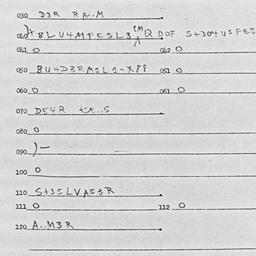 030 D3R RA..M
040 BLU4MFESL3 MQ DOF S+304USFES
041 0 042 0
050 BU+D3RM 051 0
060 0 061 0
070 DE4R
080 0
090 )-
100 0
110 S+3SLVAS3R
111 0 112 0
120 A..M3R